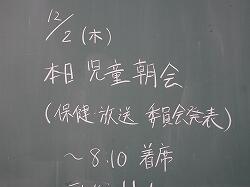 12/2(木)
本日 児童朝会
(保健・放送 委員会発表)
～8.10 着席